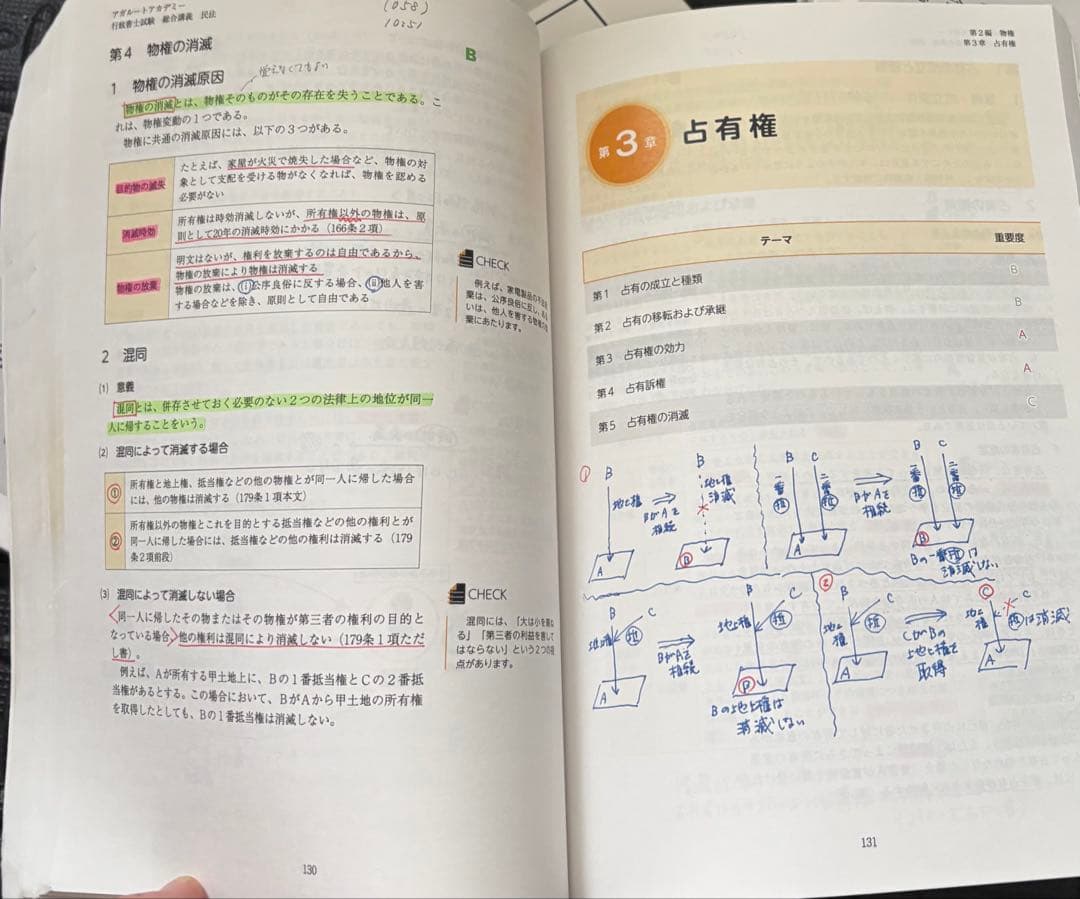 アガルートアカデミー
行政書士試験　総合講義　民法
(058)
10:51
第4　物権の消滅
B
1　物権の消滅原因
覚えなくてもよい
物権の消滅とは、物権そのものがその存在を失うことである。こ
れは、物権変動の1つである。
物権に共通の消滅原因には、以下の3つがある。
目的物の滅失
たとえば、家屋が火災で焼失した場合など、物権の対
象として支配を受ける物がなくなれば、物権を認める
必要がない
消滅時効
所有権は時効消滅しないが、所有権以外の物権は、原
則として20年の消滅時効にかかる（166条2項）
物権の放棄
明文はないが、権利を放棄するのは自由であるから、
物権の放棄により物権は消滅する
物権の放棄は、(ⅰ)公序良俗に反する場合、(ⅱ)他人を害
する場合などを除き、原則として自由である
CHECK
例えば、家電製品の不法投
棄は、公序良俗に反し、ある
いは、他人を害する物権の放
棄にあたります。
2　混同
(1)　意義
混同とは、併存させておく必要のない2つの法律上の地位が同一
人に帰することをいう。
(2)　混同によって消滅する場合
①
所有権と地上権、抵当権などの他の物権とが同一人に帰した場合
には、他の物権は消滅する（179条1項本文）
②
所有権以外の物権とこれを目的とする抵当権などの他の権利とが
同一人に帰した場合には、抵当権などの他の権利は消滅する（179
条2項前段）
(3)　混同によって消滅しない場合
同一人に帰したその物またはその物権が第三者の権利の目的と
なっている場合、他の権利は混同により消滅しない（179条1項ただ
し書）。
例えば、Aが所有する甲土地上に、Bの1番抵当権とCの2番抵
当権があるとする。この場合において、BがAから甲土地の所有権
を取得したとしても、Bの1番抵当権は消滅しない。
CHECK
混同には、「大は小を兼ね
る」「第三者の利益を害して
はならない」という2つの視
点があります。
130
第2編　物権
第3章　占有権
第3章　占有権
テーマ　重要度
第1　占有の成立と種類　B
第2　占有の移転および承継　B
第3　占有権の効力　A
第4　占有訴権　A
第5　占有権の消滅　C
①
B
地上権
A
BがAを
相続
B
地上権
消滅
B
B　C
一番抵
二番抵
A
BがAを
相続
B　C
一番抵
二番抵
B
Bの一番抵は
消滅しない
B　C
地上権
抵
A
BがAを
相続
B　C
地上権
抵
B
Bの地上権は
消滅しない
②
B　C
地上権
抵
A
CがBの
地上権を
取得
C　C
地上権
抵は消滅
A
131